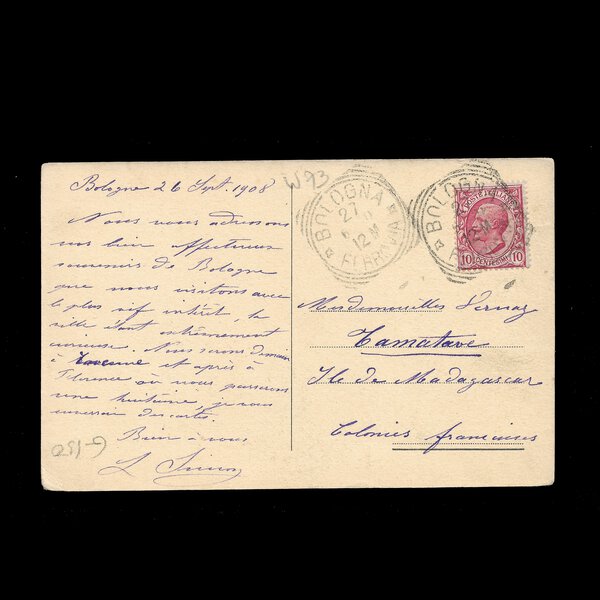 Bologne 26 Sept. 1908
Nous vous adressons
nos bien affectueux
souvenirs de Bologne
que nous visitons avec
le plus vif intérêt, la
ville étant extrêmement
curieuse. Nous serons demain
à et après à
Florence où nous passerons
une huitaine, je vous
enverrai des cartes.
Bien à vous
L
G-150
W93
BOLOGNA
27
12M
FERROVIA
BOLOGNA
FERROVIA
POSTE ITALIANE
10 CENTESIMI 10
Mesdemoiselles
Tamatave
Ile de Madagascar
Colonies françaises